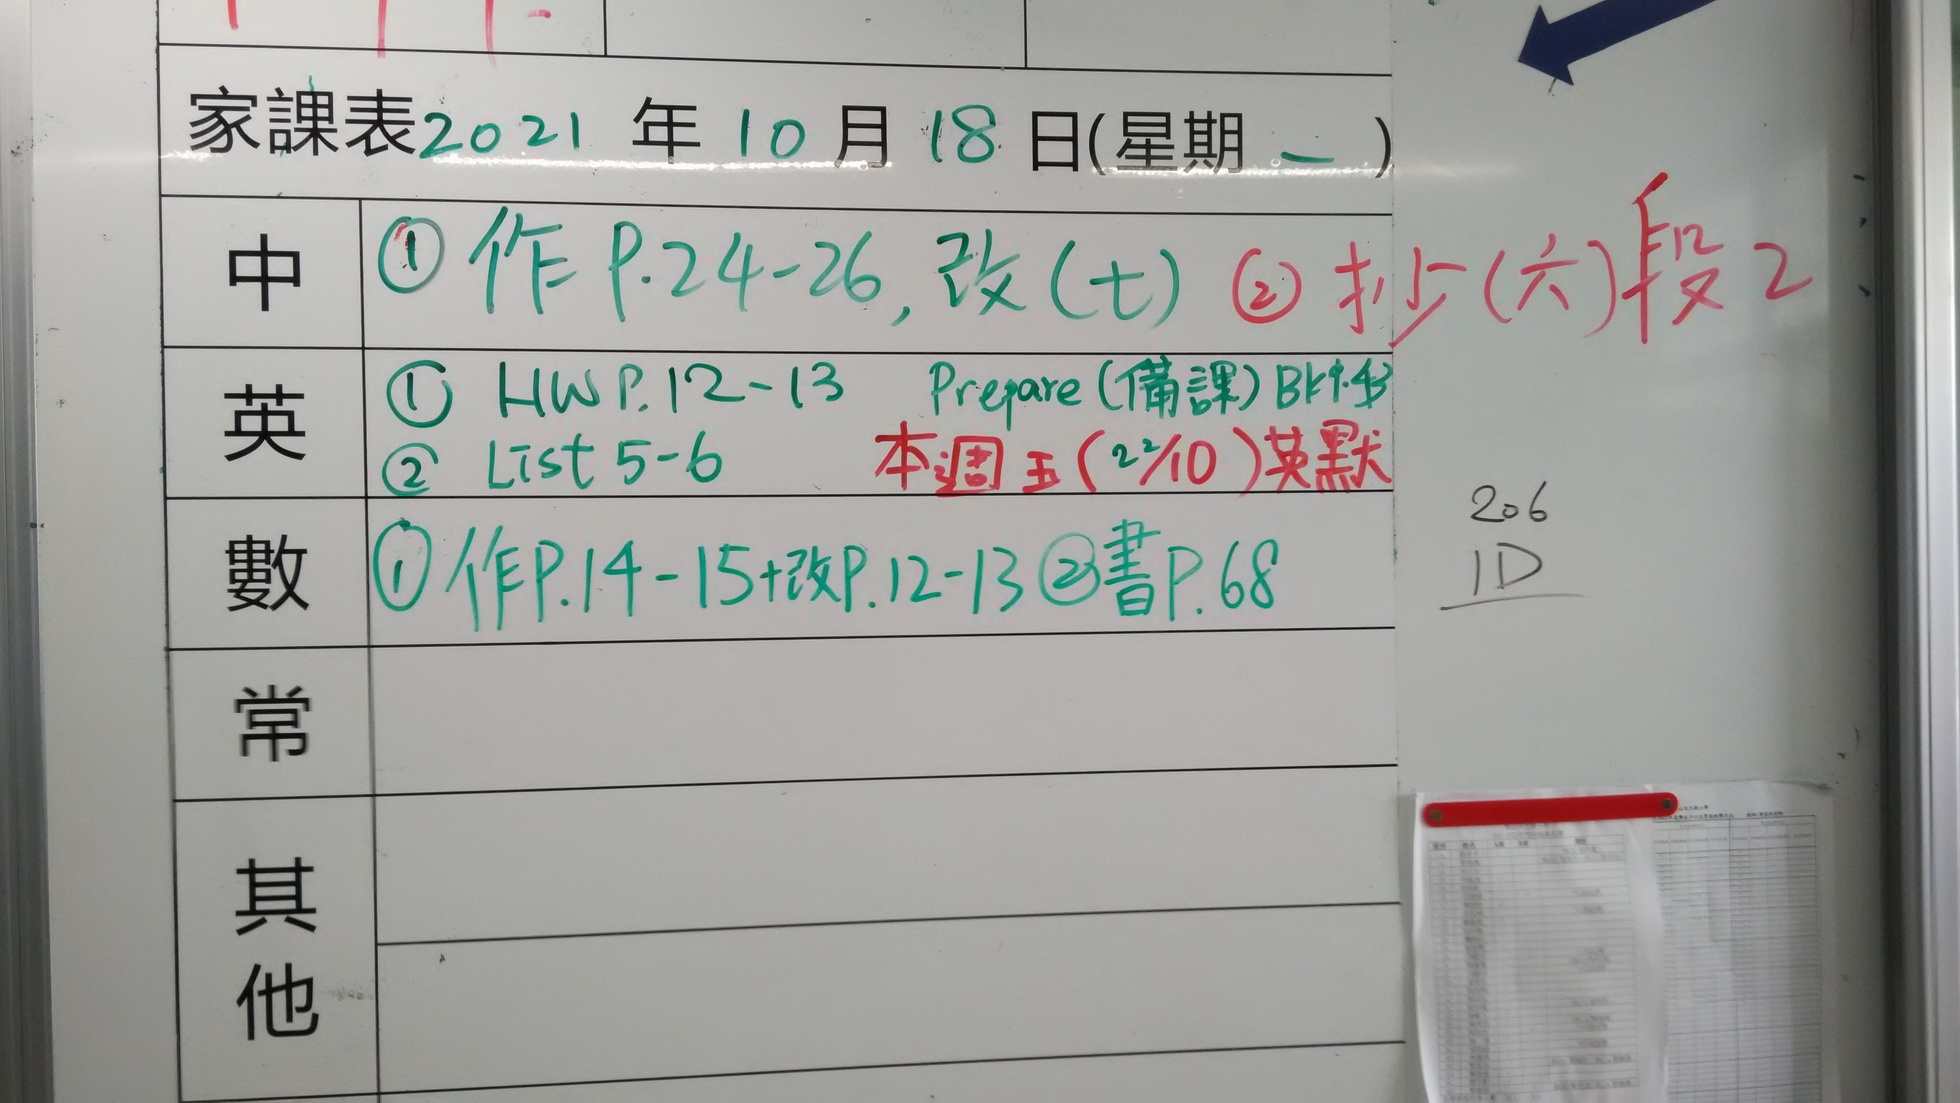 家課表2021年10月18日(星期一)
中 ①作P.24-26,改(七) ②抄(六)段2
英 ①HW P.12-13 Prepare(備課)BK P.43
②List 5-6 本週五(22/10)英默
數 ①作P.14-15+改P.12-13②書P.68
常
其他
206
1D